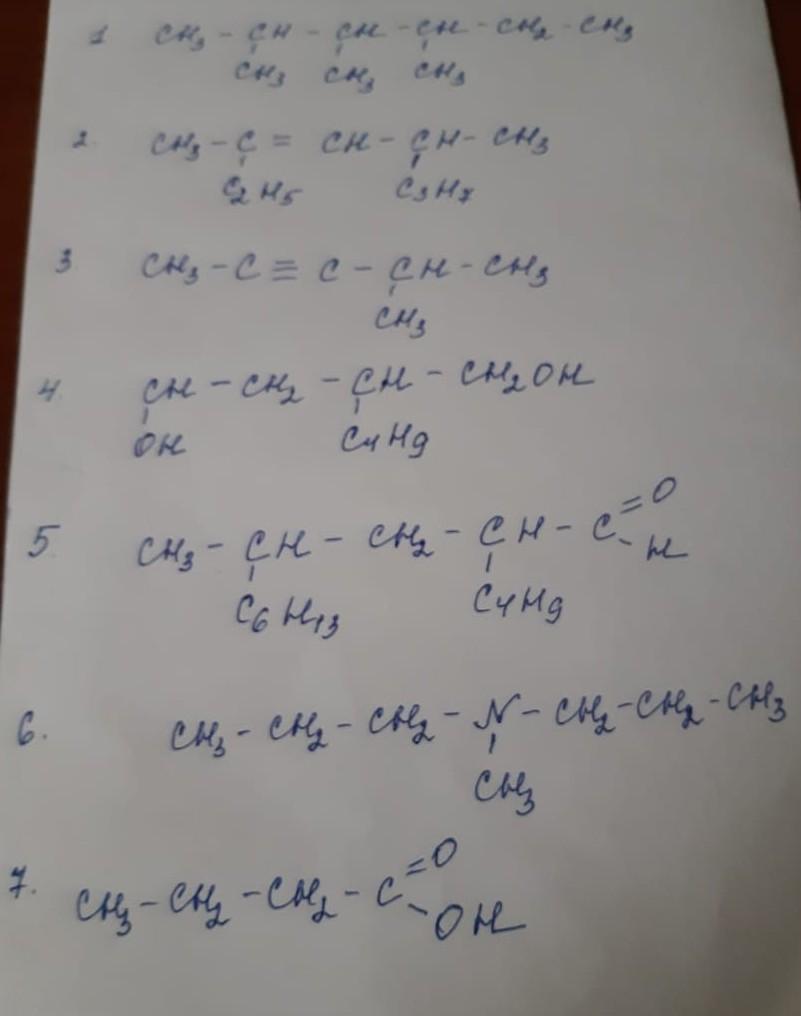 1 CH3 - CH - CH - CH - CH2 - CH3
CH3 CH3 CH3
2. CH3 - C = CH - CH - CH3
C2H5 C3H7
3 CH3 - C ≡ C - CH - CH3
CH3
4. CH - CH2 - CH - CH2OH
OH C4H9
5 CH3 - CH - CH2 - CH - C =O
- H
C6H13 C4H9
6. CH3 - CH2 - CH2 - N - CH2 - CH2 - CH3
CH3
7. CH3 - CH2 - CH2 - C =O
- OH